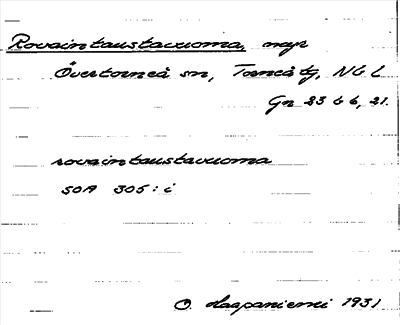 Rovaintaustavuoma, myr
Övertorneå sn, Torneå tg, NbL
Gn 23 b 6, 21.
rovaintaustavuoma
SOA 305: i
O. Haapaniemi 1931